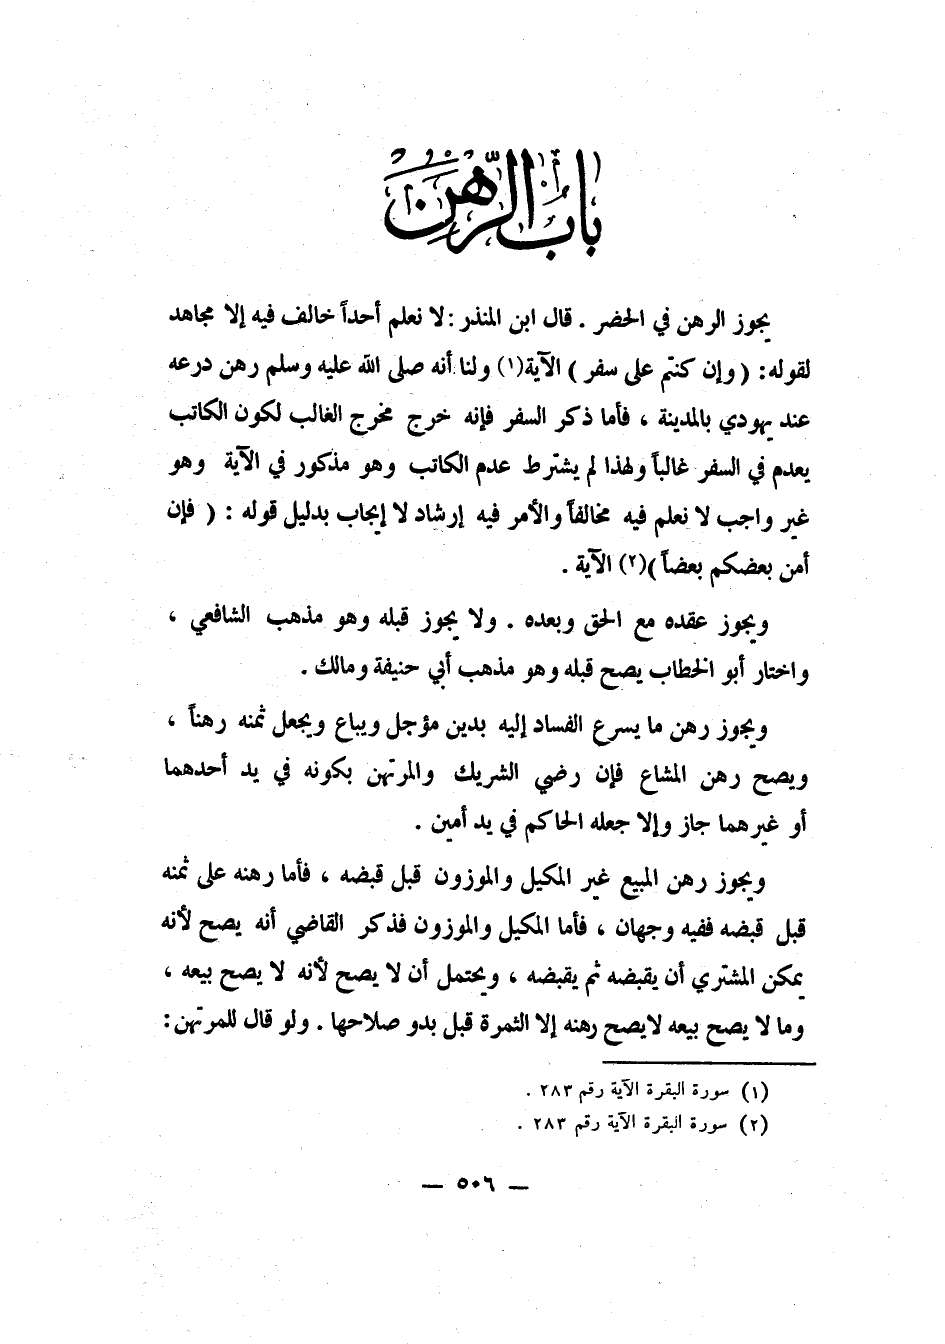 باب الرهن
يجوز الرهن في الحضر . قال ابن المنذر : لا نعلم أحداً خالف فيه إلا مجاهد
لقوله : ( وإن كنتم على سفر ) الآية(١) ولنا أنه صلى الله عليه وسلم رهن درعه
عند يهودي بالمدينة ، فأما ذكر السفر فإنه خرج مخرج الغالب لكون الكاتب
يعدم في السفر غالباً ولهذا لم يشترط عدم الكاتب وهو مذكور في الآية وهو
غير واجب لا نعلم فيه مخالفاً والأمر فيه إرشاد لا إيجاب بدليل قوله : ( فإن
أمن بعضكم بعضاً )(٢) الآية .
ويجوز عقده مع الحق وبعده . ولا يجوز قبله وهو مذهب الشافعي ،
واختار أبو الخطاب يصح قبله وهو مذهب أبي حنيفة ومالك .
ويجوز رهن ما يسرع الفساد إليه بدين مؤجل ويباع ويجعل ثمنه رهناً ،
ويصح رهن المشاع فإن رضي الشريك والمرتهن بكونه في يد أحدهما
أو غيرهما جاز وإلا جعله الحاكم في يد أمين .
ويجوز رهن المبيع غير المكيل والموزون قبل قبضه ، فأما رهنه على ثمنه
قبل قبضه ففيه وجهان ، فأما المكيل والموزون فذكر القاضي أنه يصح لأنه
يمكن المشتري أن يقبضه ثم يقبضه ، ويحتمل أن لا يصح لأنه لا يصح بيعه ،
وما لا يصح بيعه لايصح رهنه إلا الثمرة قبل بدو صلاحها . ولو قال للمرتهن :
(١) سورة البقرة الآية رقم ٢٨٣ .
(٢) سورة البقرة الآية رقم ٢٨٣ .
— ٥٠٦ —